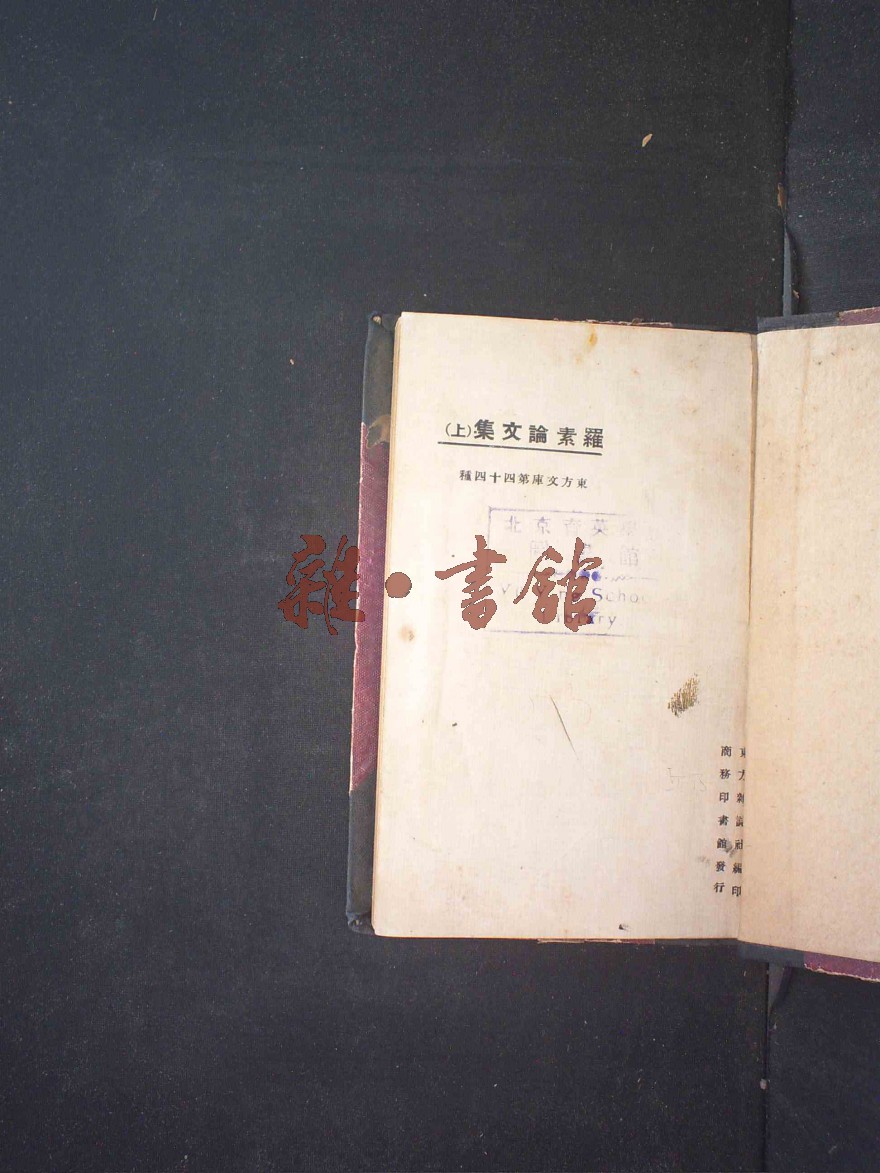 羅素論文集(上)
東方文庫第四十四種
北京育英學
館
School
Library
雜·書館
東方雜誌社編印
商務印書館發行